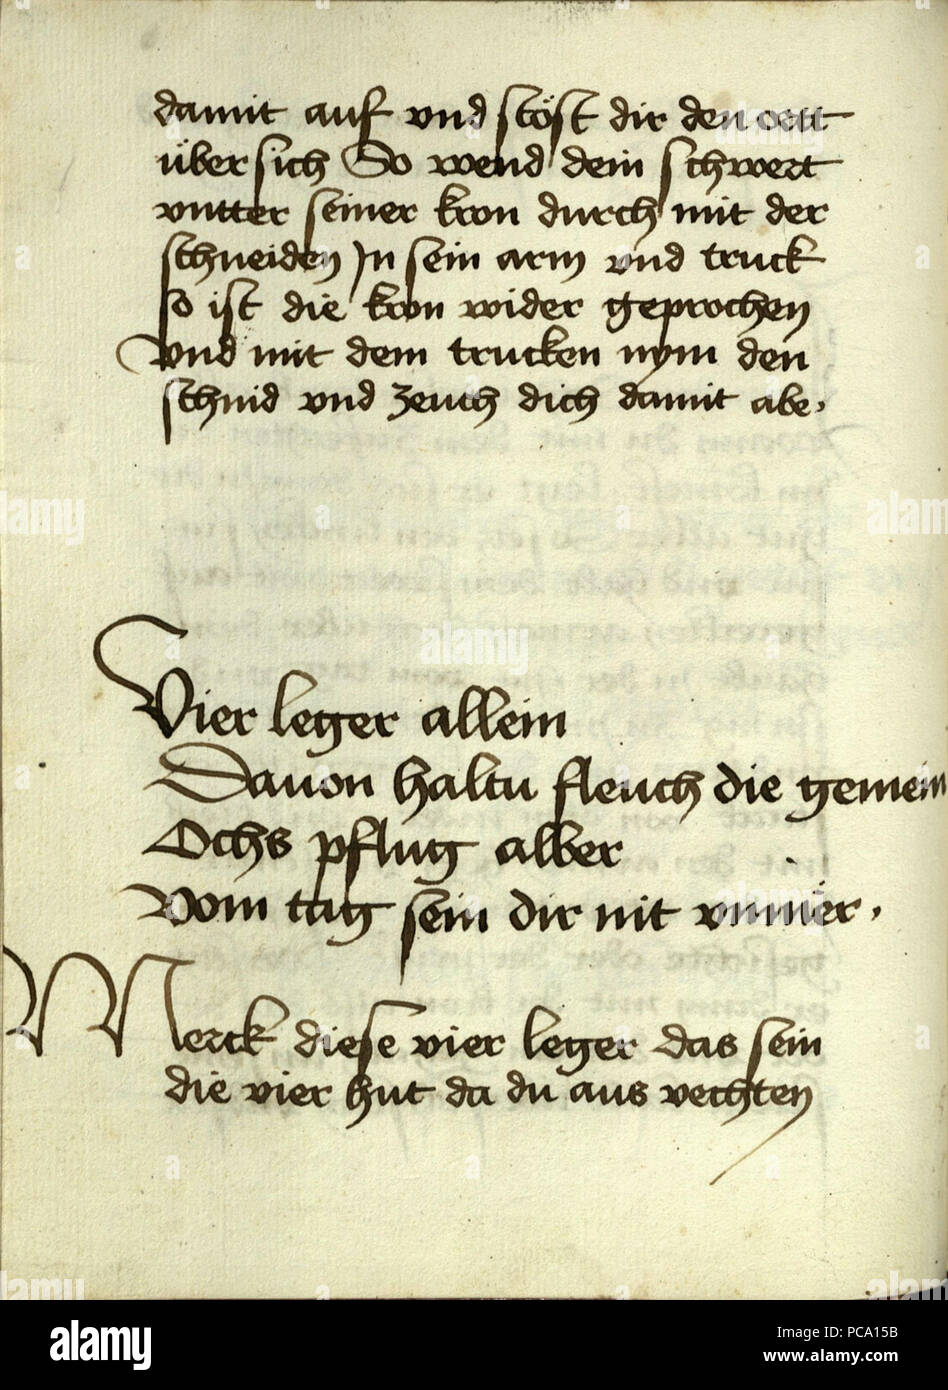 damit auf vnd stöst dir den ortt
über sich So wend dein schwert
vntter seiner kron durch mit der
schneiden Jn sein arm vnd truck
so ist die kron wider geprochen
Vnd mit dem trucken nym den
schnid vnd zeuch dich damit abe.
Vier leger allein
Dauon haltu fleuch die gemein
Ochs pflug alber
vom tag sein dir nit vnmer.
Merck diese vier leger das sein
die vier hut da du aus vechten
alamy
Image ID: PCA15B
www.alamy.com